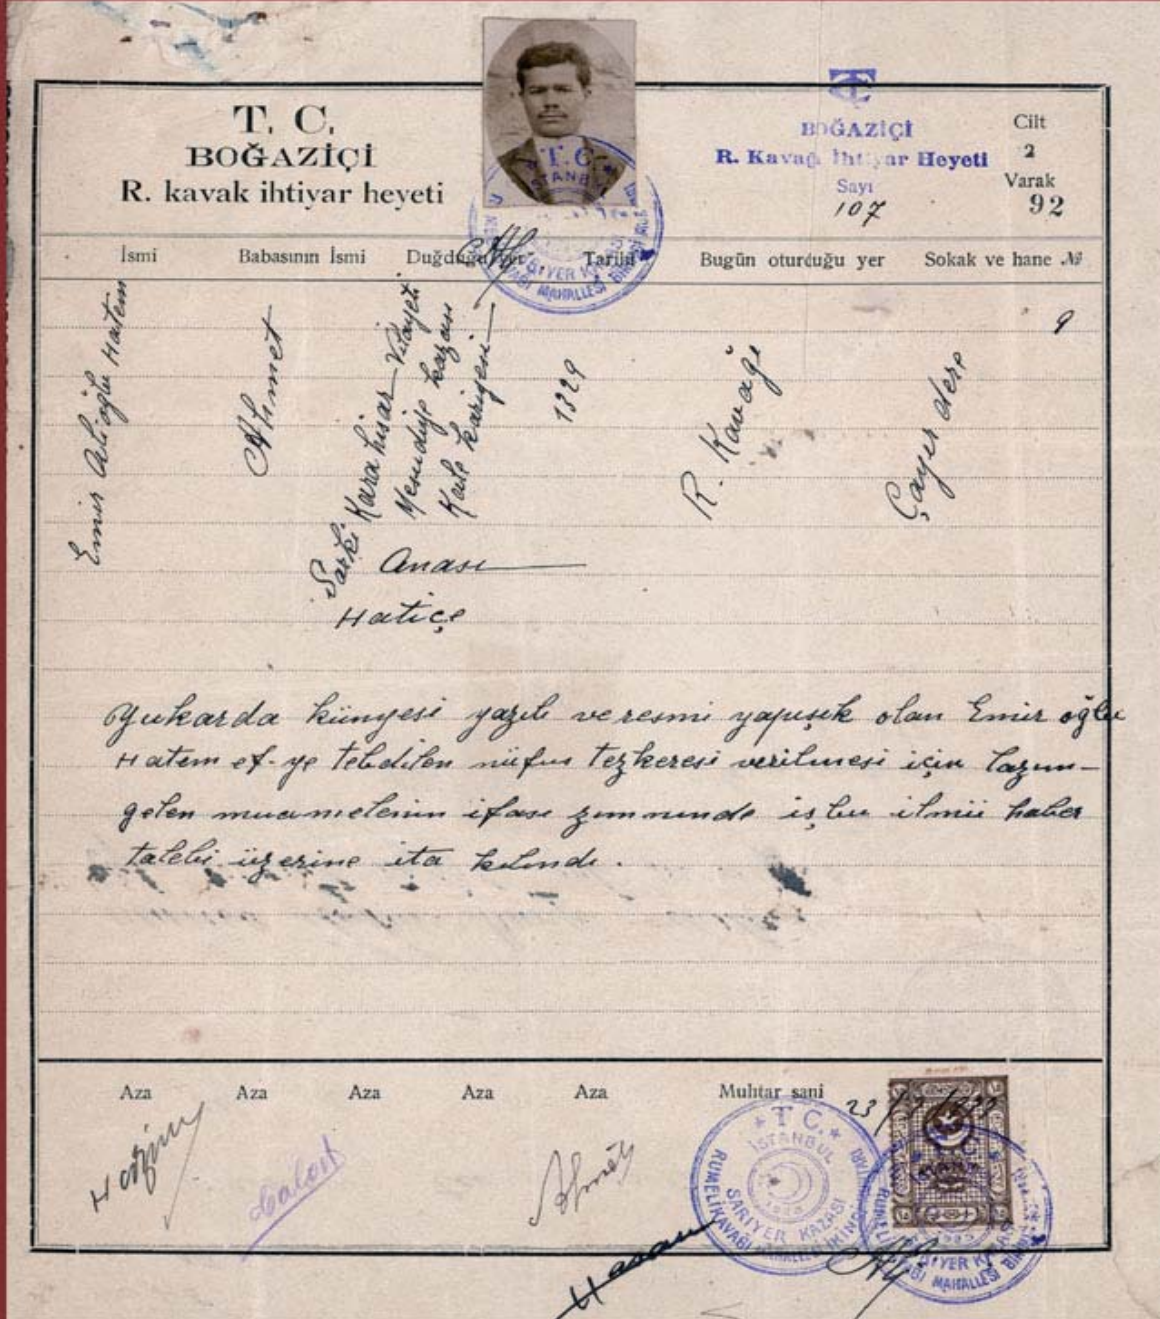 T. C.
BOĞAZİÇİ
R. kavak ihtiyar heyeti
TC
BOĞAZİÇİ
R. Kavağı İhtiyar Heyeti
Sayı
107
Cilt
2
Varak
92
T. C.
İSTANBUL
İsmi Babasının İsmi Duğduğu yer Tarihi Bugün oturduğu yer Sokak ve hane №
Emir Alioğlu Hatem
Ahmet
Şarki Kara hisar Vilayeti
Mesudiye kazası
Kale kariyesi
1329
R. Kavağı
Çayır dere
9
Anası
Hatiçe
Yukarda künyesi yazılı ve resmi yapışık olan Emir oğlu
Hatem ef-ye tebdilen nüfus tezkeresi verilmesi için lazım-
gelen muamelenin ifası zımnında iş bu ilmü haber
talebi üzerine ita kılındı.
Aza Aza Aza Aza Aza Muhtar sani
T. C.
İSTANBUL
SARIYER KAZASI
RUMELİKAVAĞI MAHALLESİ İKİNCİ
Hasan